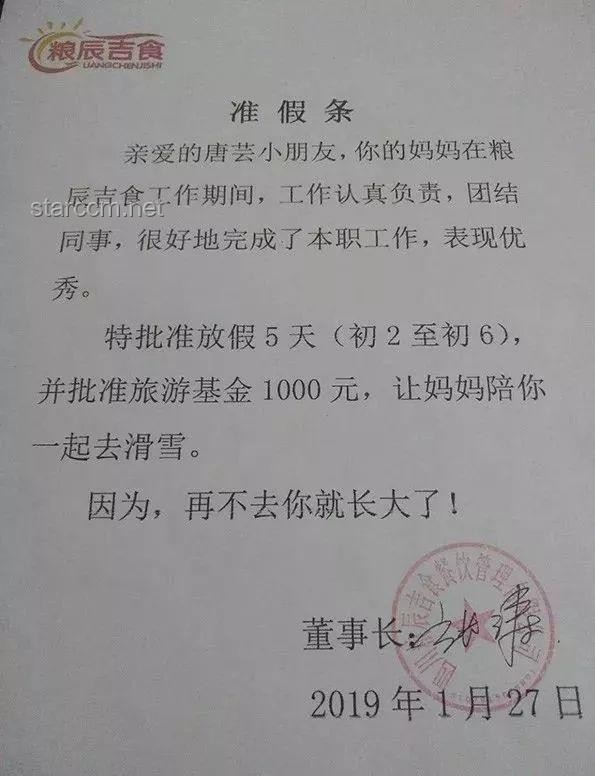 粮辰吉食
LIANGCHENJISHI
准假条
亲爱的唐芸小朋友，你的妈妈在粮
辰吉食工作期间，工作认真负责，团结
starccm.net
同事，很好地完成了本职工作，表现优
秀。
特批准放假5天（初2至初6），
并批准旅游基金1000元，让妈妈陪你
一起去滑雪。
因为，再不去你就长大了！
四川 辰吉食餐饮管理 限公司
董事长：
2019年1月27日